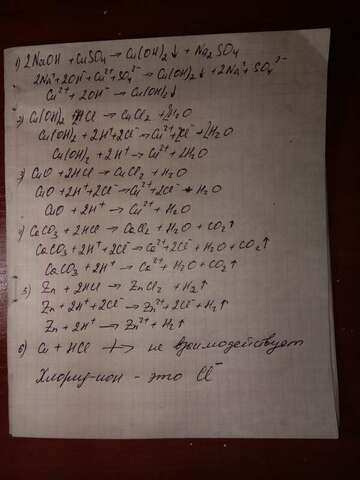 1) 2NaOH + CuSO₄ → Cu(OH)₂↓ + Na₂SO₄
2Na⁺ + 2OH⁻ + Cu²⁺ + SO₄²⁻ → Cu(OH)₂↓ + 2Na⁺ + SO₄²⁻
Cu²⁺ + 2OH⁻ → Cu(OH)₂↓
2) Cu(OH)₂ + 2HCl → CuCl₂ + 2H₂O
Cu(OH)₂ + 2H⁺ + 2Cl⁻ → Cu²⁺ + 2Cl⁻ + 2H₂O
Cu(OH)₂ + 2H⁺ → Cu²⁺ + 2H₂O
3) CuO + 2HCl → CuCl₂ + H₂O
CuO + 2H⁺ + 2Cl⁻ → Cu²⁺ + 2Cl⁻ + H₂O
CuO + 2H⁺ → Cu²⁺ + H₂O
4) CaCO₃ + 2HCl → CaCl₂ + H₂O + CO₂↑
CaCO₃ + 2H⁺ + 2Cl⁻ → Ca²⁺ + 2Cl⁻ + H₂O + CO₂↑
CaCO₃ + 2H⁺ → Ca²⁺ + H₂O + CO₂↑
5) Zn + 2HCl → ZnCl₂ + H₂↑
Zn + 2H⁺ + 2Cl⁻ → Zn²⁺ + 2Cl⁻ + H₂↑
Zn + 2H⁺ → Zn²⁺ + H₂↑
6) Cu + HCl ↛ не взаимодействует
Хлорид-ион - это Cl⁻